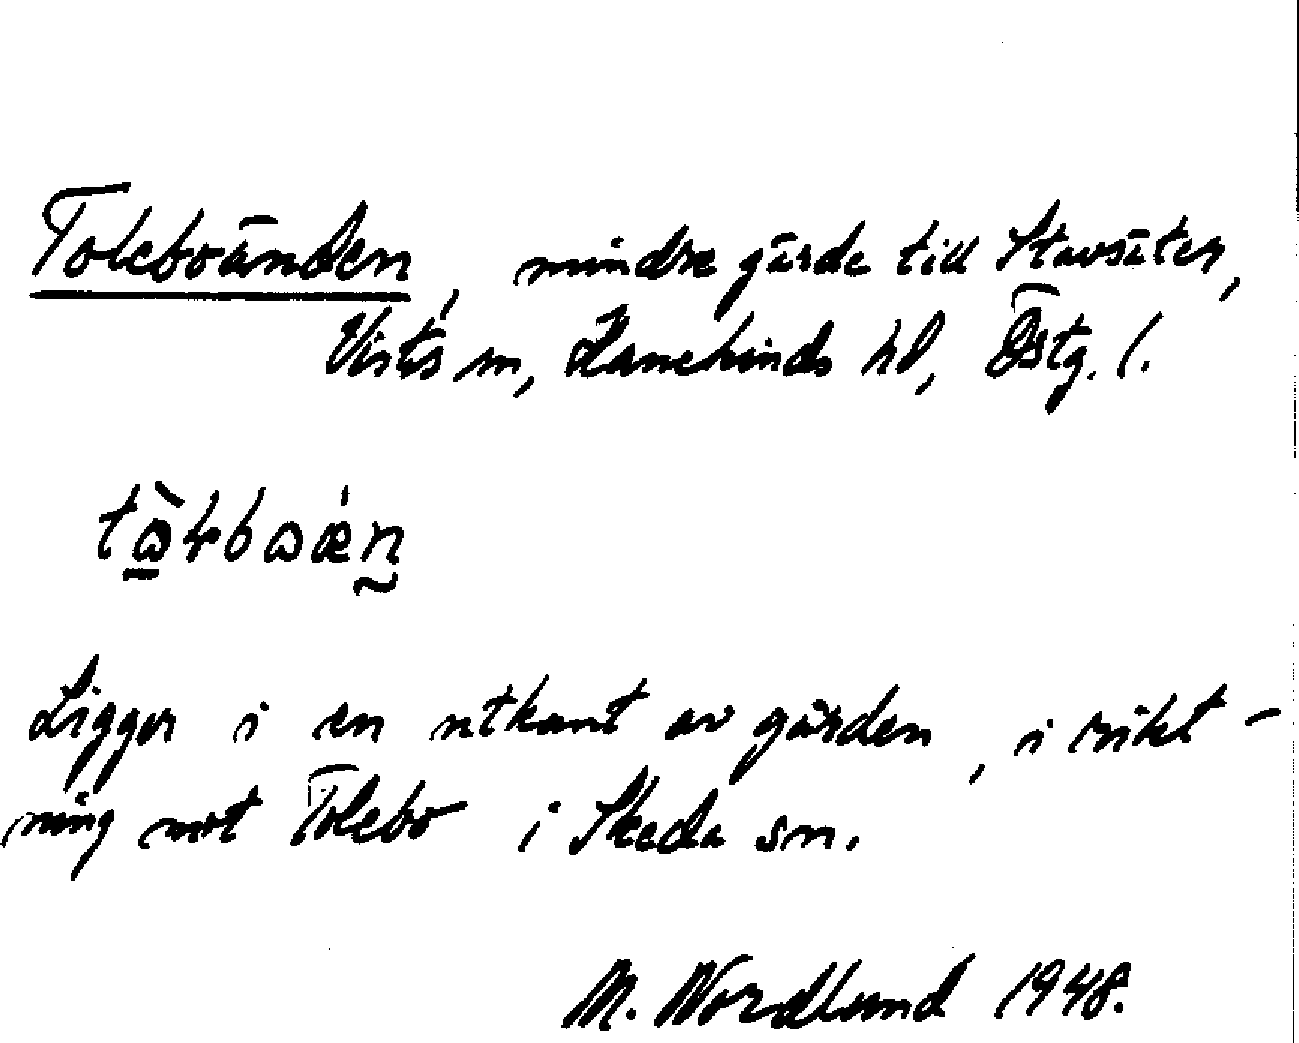 Toleboänden, mindre gärde till Stavsäter,
Vists sn, Hanekinds hd, Östg. l.
Ligger i en utkant av gården, i rikt-
ning mot Tolebo i Skeda sn.
M. Nordlund 1948.